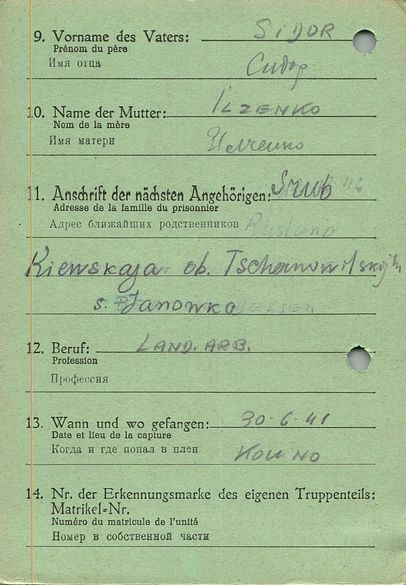 9. Vorname des Vaters: SIDOR
Prénom du père
Имя отца Сидор
10. Name der Mutter: ILZENKO
Nom de la mère
Имя матери
11. Anschrift der nächsten Angehörigen:
Adresse de la famille du prisonnier
Адрес ближайших родственников
Kiewskaja ob.
s. Janowka
12. Beruf: LAND. ARB.
Profession
Профессия
13. Wann und wo gefangen: 30-6-41
Date et lieu de la capture
Когда и где попал в плен
14. Nr. der Erkennungsmarke des eigenen Truppenteils:
Matrikel-Nr.
Numéro du matricule de l'unité
Номер в собственной части